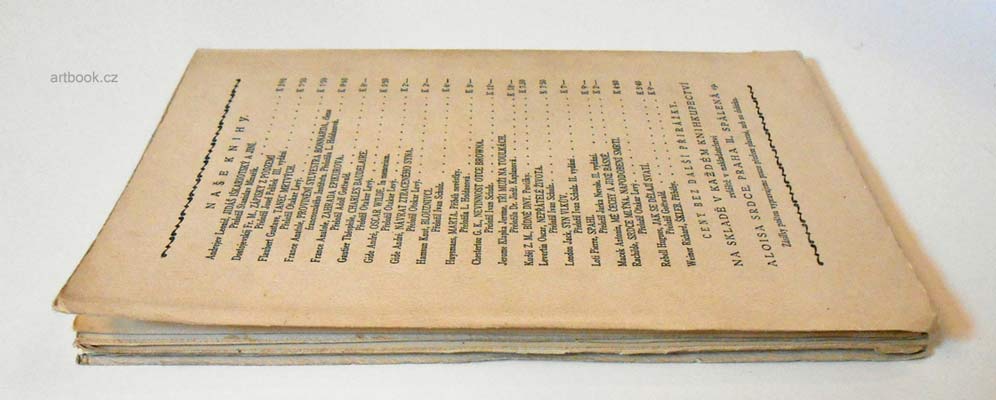 artbook.cz
NAŠE KNIHY.
Andrejev Leonid, JIDÁŠ IŠKARIOTSKÝ A JINÍ.
Přeložil Stanislav Minařík. K 3·90
Dostojevskij Fr. M., ZÁPISKY Z PODZEMÍ
Přeložil Josef Folprecht. III. vydání. K 7·50
Flaubert Gustave, TANEC MRTVÝCH.
Přeložil Otakar Levý. K 1·50
France Anatole, PROVINĚNÍ SYLVESTRA BONNARDA, člena
francouzského institutu. Přeložila L. Holdánová. K 9·60
France Anatole, ZAHRADA EPIKUROVA.
Přeložil Adolf Gottwald. K 8·—
Gautier Théophil, CHARLES BAUDELAIRE.
Přeložil Otakar Levý. K 2·50
Gide André, OSCAR WILDE. In memoriam.
Přeložil Otakar Levý. K 2·—
Gide André, NÁVRAT ZTRACENÉHO SYNA.
Přeložil Otakar Levý. K 2·—
Hamsun Knut, BLOUZNIVCI.
Přeložil Ivan Schulz. K 6·—
Huysmans, MARTA. Příběh nevěstky.
Přeložila L. Holdánová. K 5·—
Chesterton G. K., NEVINNOST OTCE BROWNA.
Přeložil Ivan Schulz. K 12·—
Jerome Klapka Jerome, TŘI MUŽI NA TOULKÁCH.
Přeložila Dr. Jindř. Karbanová. K 10·—
Kuděj Z. M., BÍDNÉ DNY. Povídky. K 7.50
Levertin Oscar, NEPŘÁTELÉ ŽIVOTA.
Přeložil Ivan Schulz. K 7·50
London Jack, SYN VLKŮV.
Přeložil Ivan Schulz. II. vydání. K 7·—
Loti Pierre, SPAHI.
Přeložila Jarka Nevole. II. vydání. K 9·—
Macek Antonín, MÉ ČECHY A JINÉ BÁSNĚ. K 2·—
Rachilde, SRDCE MLÝNA. NAPODOBENÍ SMRTI.
Přeložil Otakar Levý. K 4·80
Rebell Hugues, JAK SE DĚLAJÍ SVATÍ.
Přeložil Gottwald. K 3·60
Weiner Richard, ŠKLEB. Příběhy. K 9·—
CENY BEZ DALŠÍ PŘIRÁŽKY.
NA SKLADĚ V KAŽDÉM KNIHKUPECTVÍ
zvláště v nakladatelství
ALOISA SRDCE, PRAHA II, SPÁLENÁ